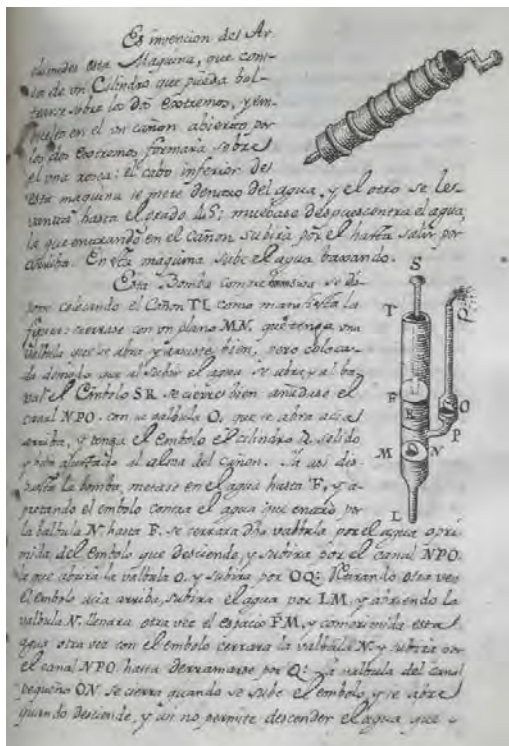 Es invencion del Ar
chimedes esta Maquina, que cons
ta de vn Cilindro que pueda bol
tearse sobre los dos extremos, y em
buelto en el vn cañon abierto por
los dos extremos formará sobre
el vna rosca: el cabo inferior de
esta maquina se mete dentro del agua, y el otro se le
vanta hasta el grado 45; muebase despues contra el agua,
la que entrando en el Cañon subirá por el hasta salir por
arriba. En esta maquina sube el agua baxando.
Esta Bomba se dis
pone colocando el Cañon TL como manifiesta la
figura: cierrase con vn plano MN, que tenga vna
valbula que se abra y ajuste bien, pero coloca
da de modo que al subir el agua se abra y al ba
xar el Embolo SR se cierre bien añadase el
canal NPO. con la valbula O, que se abra acia
arriba, y tenga el embolo el cilindro R solido
y bien ajustado al alma del cañon. Ya asi dis
puesta la bomba, metase en el agua hasta F, y a
pretando el embolo contra el agua que entró por
la balbula N hasta F. se cerrara dha valbula por el agua opri
mida del embolo que desciende, y subira por el canal NPO.
la que abrirá la valbula O. y subira por OQ: tirando otra vez
el embolo acia arriba, subira el agua por LM, y abriendo la
valbula N. llenara otra vez el espacio FM, y comprimida esta
agua otra vez con el embolo cerrara la valbula N. y subira por
el canal NPO. hasta derramarse por Q: la valbula del canal
pequeño ON. se cierra quando se sube el embolo, y se abre
quando desciende, y asi no permite descender el agua que
S
T
Q
F
R
O
P
M
N
L